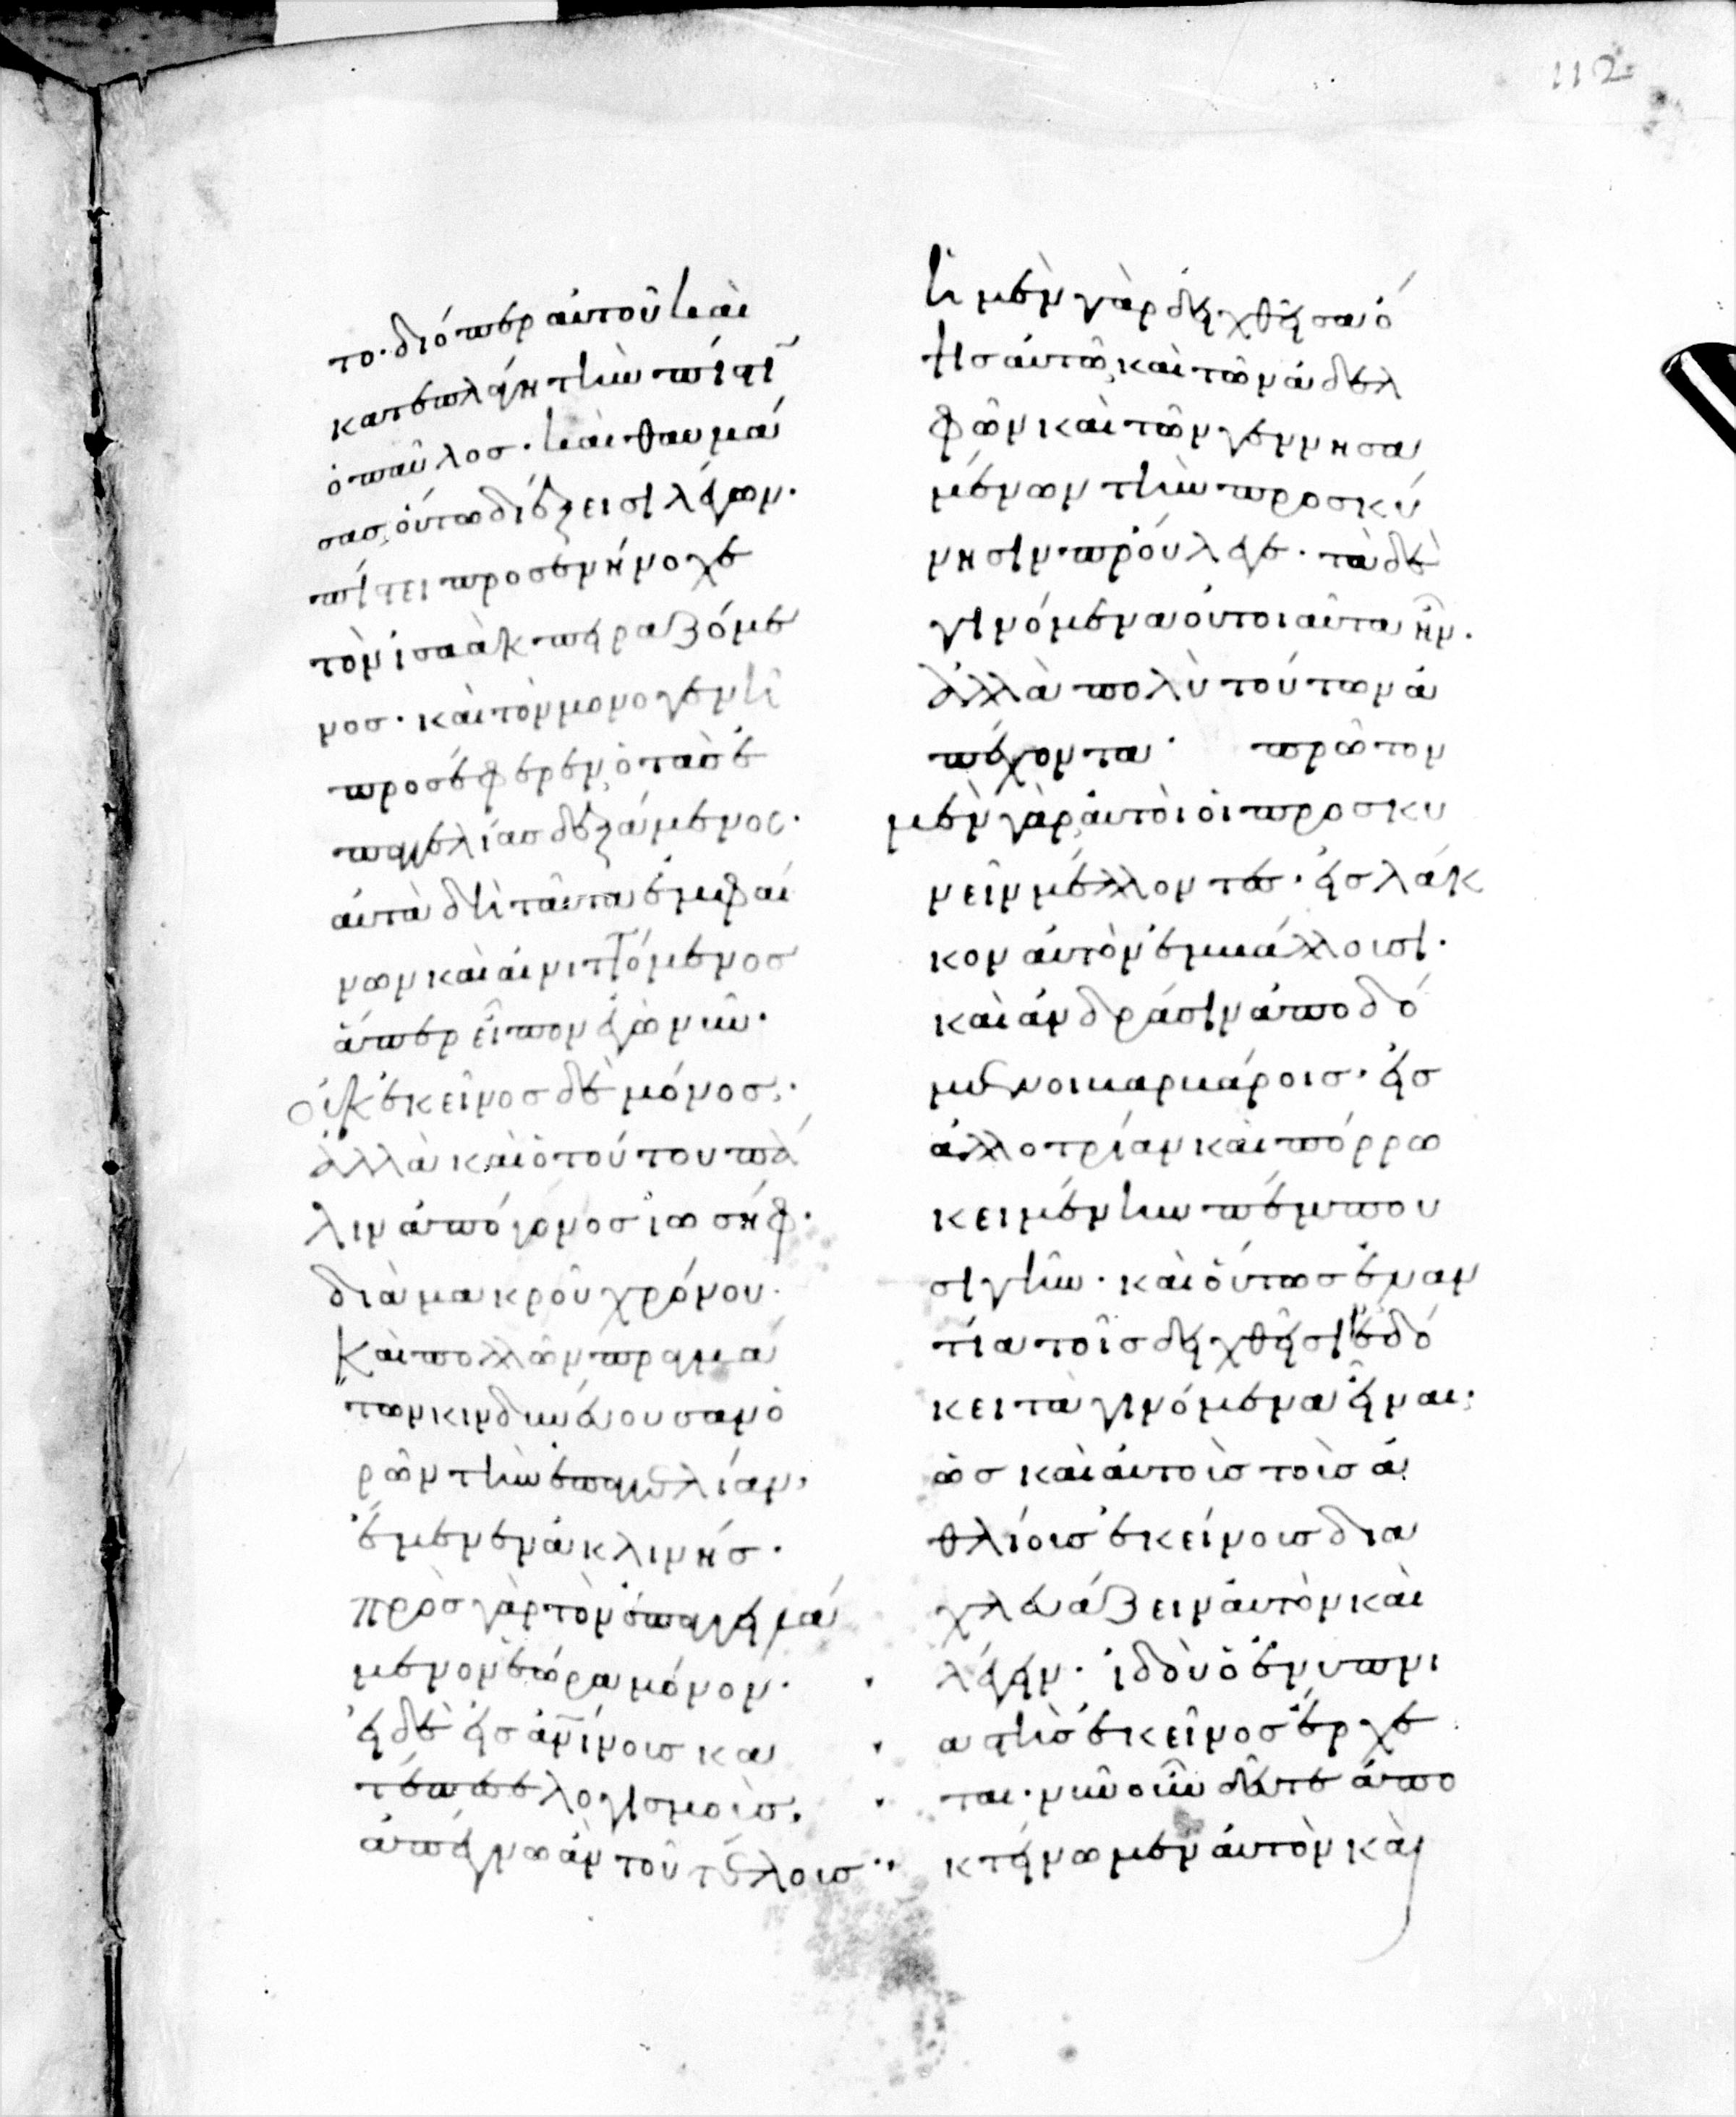 112
το· διόπερ αὐτοῦ καὶ
κατεπλάγη τὴν πίστῑ
ὁ παῦλος· καὶ θαυμά
σας, οὕτω διέξεισι λέγων·
πίστει προσενήνοχε
τὸν ἰσαὰκ πειραζόμε
νος· καὶ τὸν μονογενῆ
προσέφερεν, ὁ τὰς ἐ
παγγελίας δεξάμενος·
αὐτὰ δὴ ταῦτα ἐμφαί
νων καὶ αἰνιττόμενος
ἅπερ εἶπον ἐγὼ νῦν·
Οὐκ ἐκεῖνος δὲ μόνος·
ἀλλὰ καὶ ὁ τούτου πά
λιν ἀπόγονος ἰωσήφ·
διὰ μακροῦ χρόνου·
καὶ πολλῶν πραγμά
των κινδυνεύουσαν ὁ
ρῶν τὴν ἐπαγγελίαν,
ἔμενεν ἀκλινής·
πρὸς γὰρ τὸν ἐπαγγειλά
μενον ἑώρα μόνον·
εἰ δὲ εἰς ἀν̄ίνους κα
τέπεσε λογισμοὺς,
ἀπέγνω ἂν τοῦ τέλους··
ἡ μὲν γὰρ δειχθεῖσα ὄ
ψις αὐτῶ, καὶ τῶν ἀδελ
φῶν καὶ τῶν γεννησα
μένων τὴν προσκύ
νησιν προύλεγε· τὰ δὲ
γινόμενα οὐ τοιαῦτα ἦν·
ἀλλὰ πολὺ τούτων ἀ
πέχοντα· πρῶτον
μὲν γὰρ αὐτοὶ οἱ προσκυ
νεῖν μέλλοντες· εἰς λάκ
κον αὐτὸν ἐμβάλλουσι·
καὶ ἀνδράσιν ἀποδό
μενοι βαρβάροις· εἰς
ἀλλοτρίαν καὶ πόρρω
κειμένην πέμπου
σι γῆν· καὶ οὕτως ἐναν
τία τοῖς δειχθεῖσιν ἐδό
κει τὰ γινόμενα εἶναι·
ὡς καὶ αὐτοῖς τοῖς ἀ
θλίοις ἐκείνοις δια
χλευάζειν αὐτὸν καὶ
λέγειν· ἰδοὺ ὁ ἐνυπνι
αστὴς ἐκεῖνος ἔρχε
ται· νῦν οὖν δεῦτε ἀπο
κτείνωμεν αὐτὸν καὶ